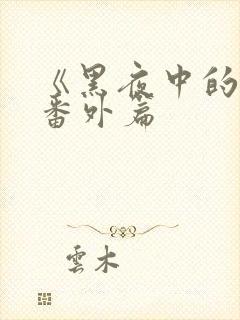 《黑夜中的
番外篇
雲木